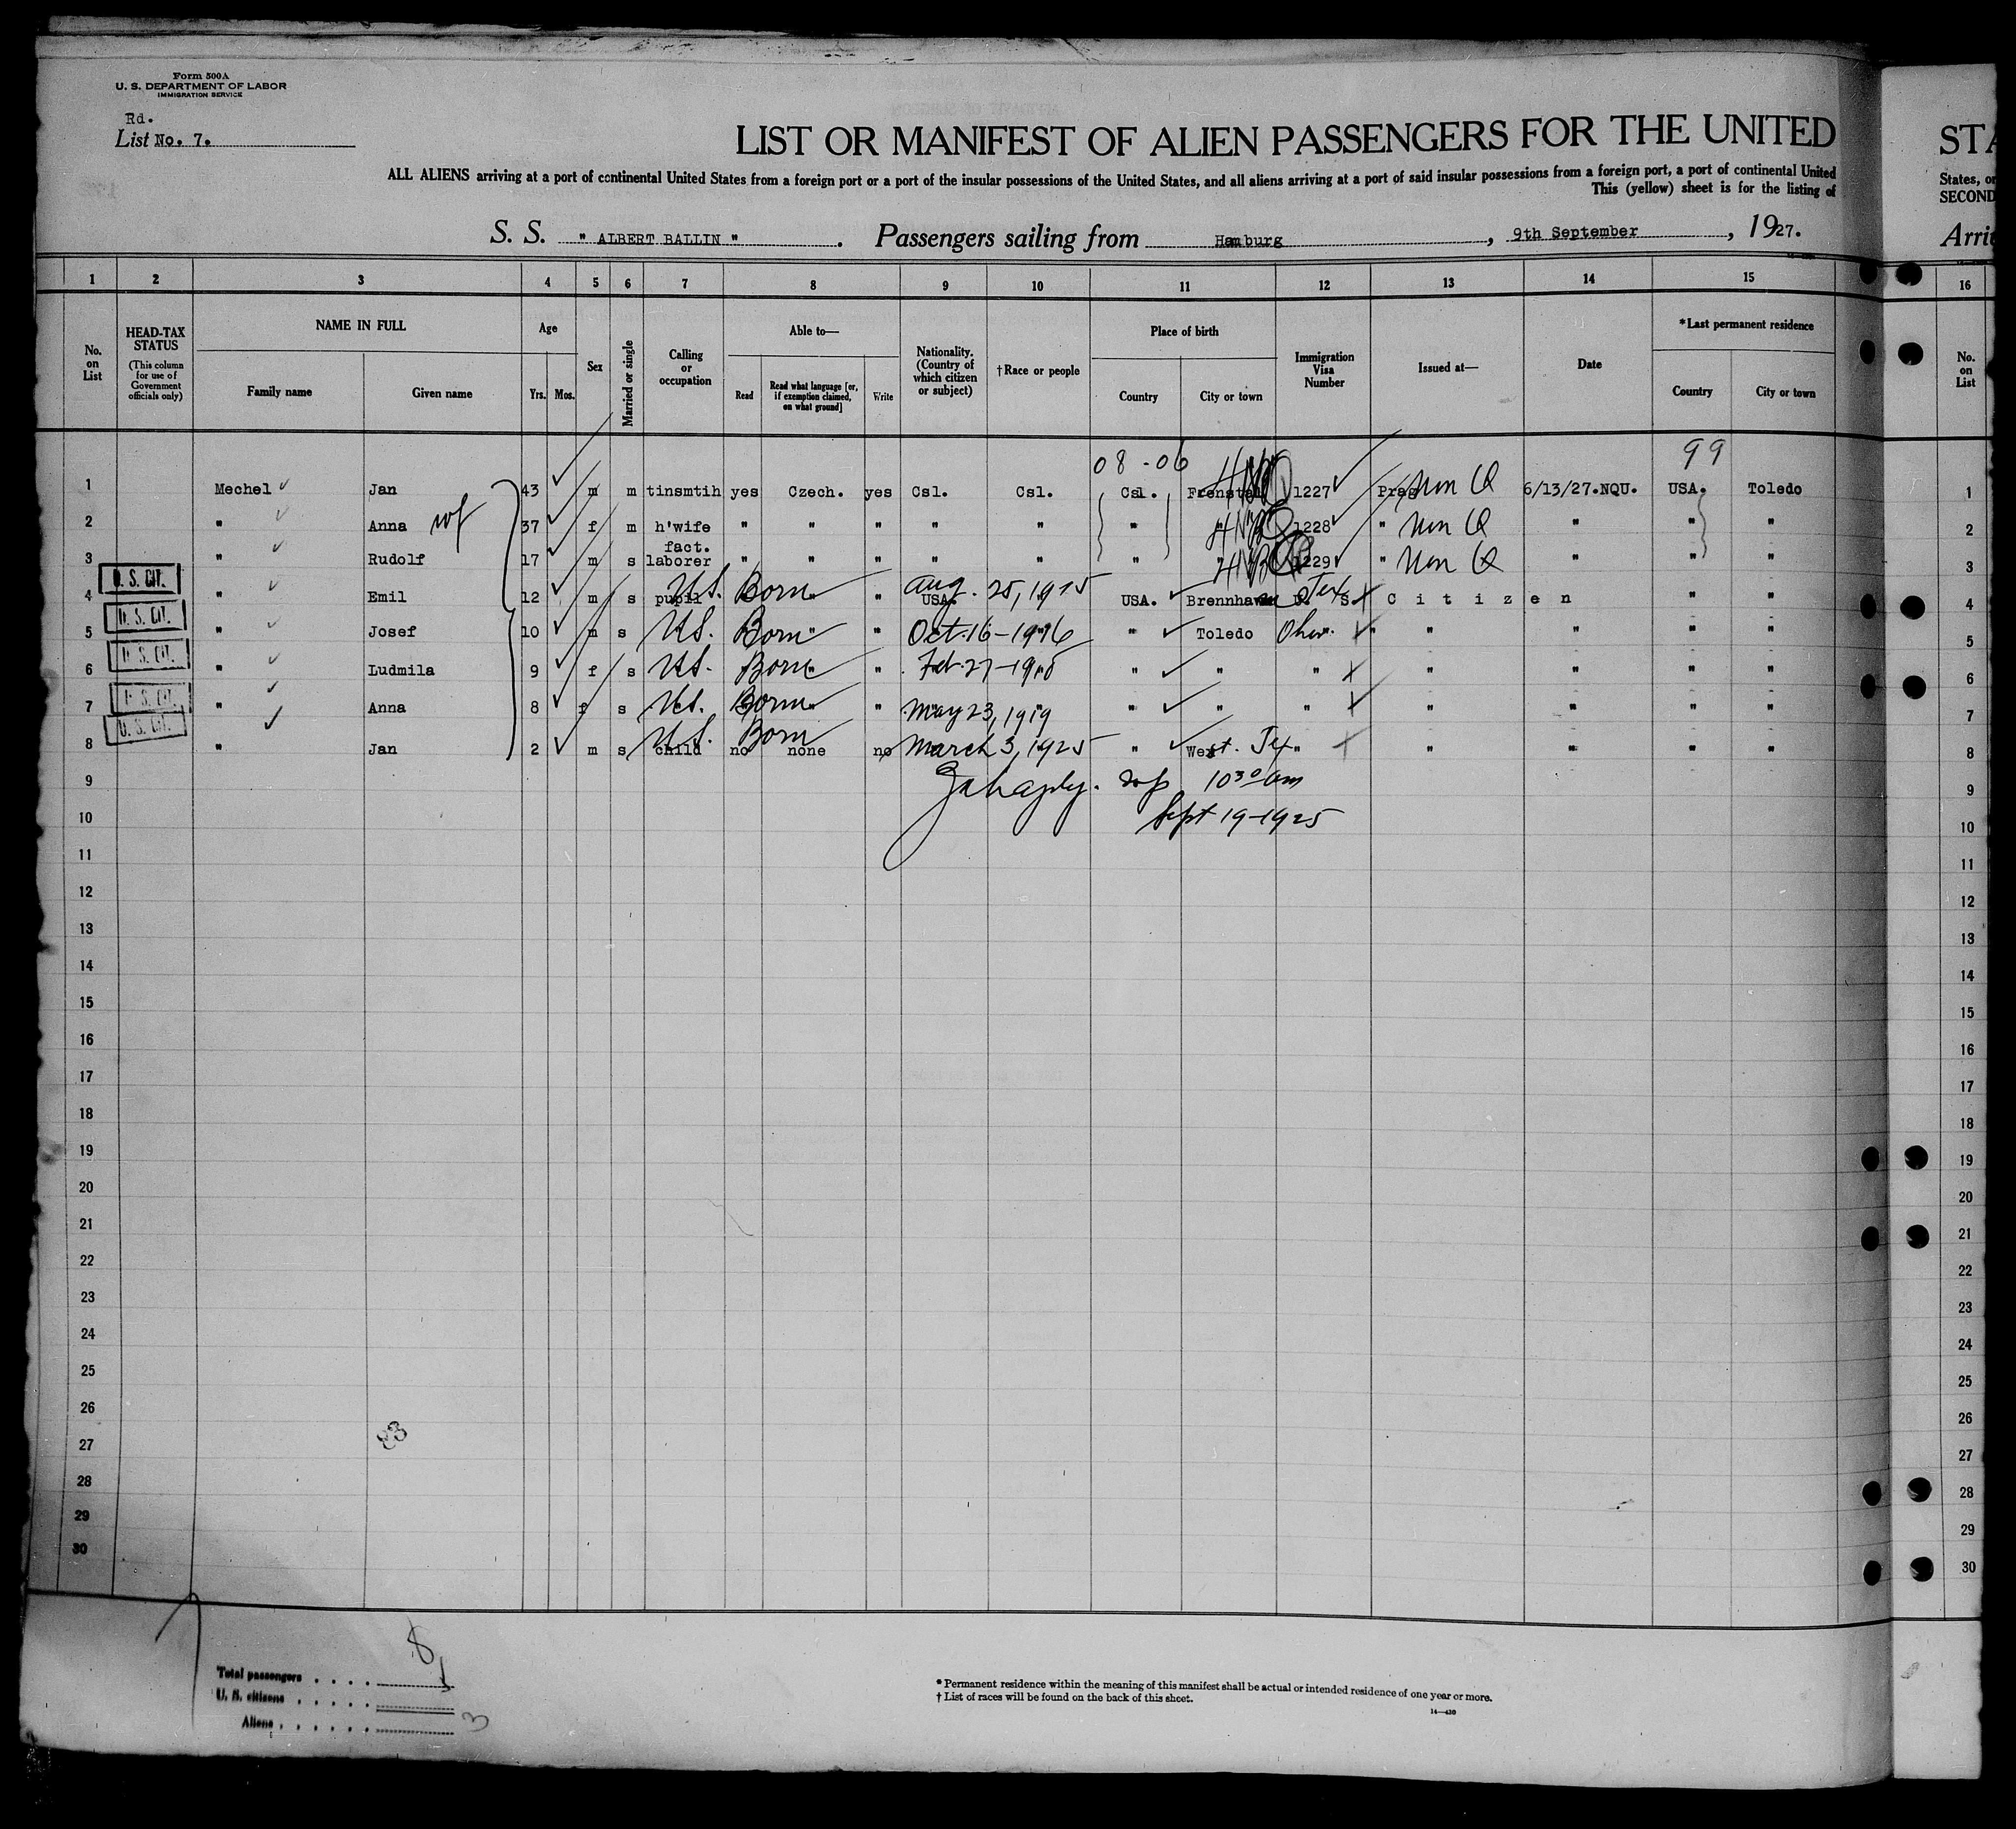 Form 500A
U. S. DEPARTMENT OF LABOR
IMMIGRATION SERVICE
Rd.
List No. 7.
LIST OR MANIFEST OF ALIEN PASSENGERS FOR THE UNITED STA
ALL ALIENS arriving at a port of continental United States from a foreign port or a port of the insular possessions of the United States, and all aliens arriving at a port of said insular possessions from a foreign port, a port of continental United States, or
This (yellow) sheet is for the listing of SECOND
S. S. " ALBERT BALLIN ". Passengers sailing from Hamburg, 9th September, 1927. Arri
1 2 3 4 5 6 7 8 9 10 11 12 13 14 15 16
No. on List
HEAD-TAX STATUS
(This column for use of Government officials only)
NAME IN FULL
Family name Given name
Age
Yrs. Mos.
Sex
Married or single
Calling or occupation
Able to—
Read Read what language [or, if exemption claimed, on what ground] Write
Nationality. (Country of which citizen or subject)
†Race or people
Place of birth
Country City or town
Immigration Visa Number
Issued at—
Date
*Last permanent residence
Country City or town
No. on List
08-06 99
1 Mechel Jan 43 m m tinsmtih yes Czech. yes Csl. Csl. Csl. 1227 Prag Non Q 6/13/27.NQU. USA. Toledo 1
2 " Anna wf 37 f m h'wife " " " " " " " 1228 " Non Q " " " 2
3 " Rudolf 17 m s fact. laborer " " " " " " " 1229 " Non Q " " " 3
U. S. CIT.
4 " Emil 12 m s pupil U.S. Born " USA. Aug. 25, 1915 USA. Tex. U. S. Citizen " " 4
U. S. CIT.
5 " Josef 10 m s U.S. Born " " Oct. 16-1916 " Toledo Ohio. " " " " " 5
U. S. CIT.
6 " Ludmila 9 f s U.S. Born " " Feb. 27-1918 " " " " " " " 6
U. S. CIT.
7 " Anna 8 f s U.S. Born " " May 23, 1919 " " " " " " " 7
U. S. CIT.
8 " Jan 2 m s child U.S. Born no none no March 3, 1925 " West. Tex " " " " " 8
9 10 30 am 9
10 Sept 19-1925 10
11 11
12 12
13 13
14 14
15 15
16 16
17 17
18 18
19 19
20 20
21 21
22 22
23 23
24 24
25 25
26 26
27 27
28 28
29 29
30 30
Total passengers . . . . 8
U. S. citizens . . . . .
Aliens . . . . . . 3
* Permanent residence within the meaning of this manifest shall be actual or intended residence of one year or more.
† List of races will be found on the back of this sheet.
14—430